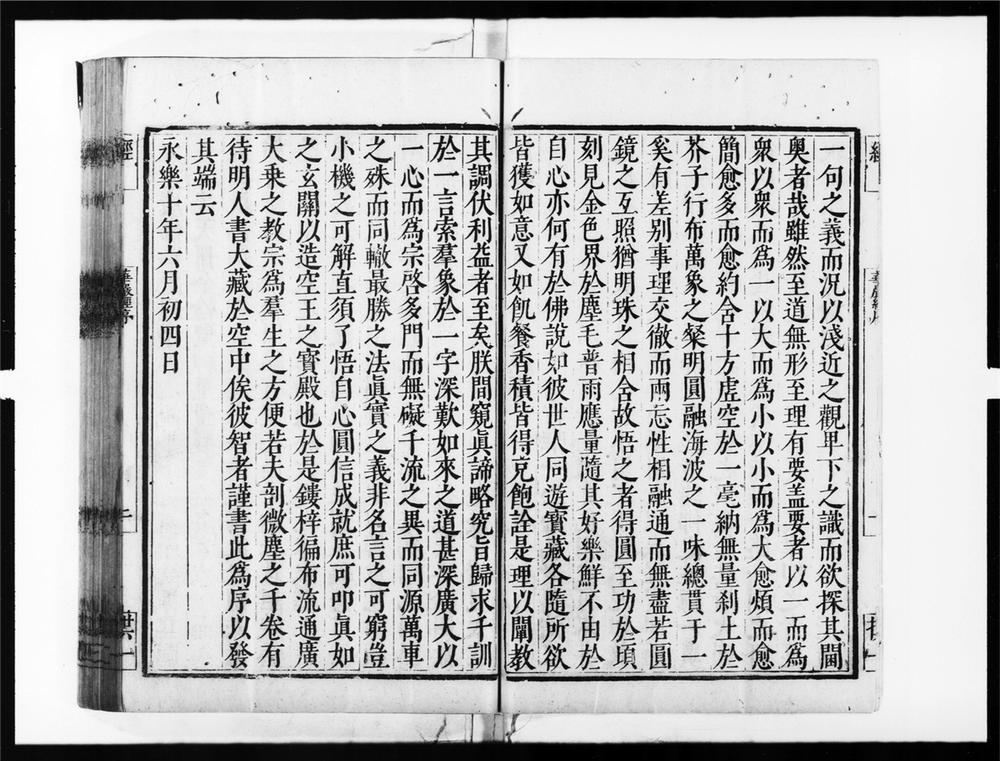 一句之義而況以淺近之觀卑下之識而欲探其閫
奧者哉雖然至道無形至理有要蓋要者以一而為
衆以衆而為一以大而為小以小而為大愈煩而愈
簡愈多而愈約舍十方虛空於一毫納無量剎土於
芥子行布萬象之粲明圓融海波之一味總貫于一
奚有差別事理交徹而兩忘性相融通而無盡若圓
鏡之互照猶明珠之相含故悟之者得圓至功於頃
刻見金色界於塵毛普雨應量隨其好樂鮮不由於
自心亦何有於佛說如彼世人同遊寶藏各隨所欲
皆獲如意又如飢餐香積皆得充飽詮是理以闡教
其調伏利益者至矣朕間窺眞諦略究旨歸求千訓
於一言索羣象於一字深歎如來之道甚深廣大以
一心而為宗啓多門而無礙千流之異而同源萬車
之殊而同轍最勝之法眞實之義非名言之可窮豈
小機之可解直須了悟自心圓信成就庶可叩眞如
之玄關以造空王之寶殿也於是鏤梓徧布流通廣
大乗之教宗為羣生之方便若夫剖微塵之千卷有
待明人書大藏於空中俟彼智者謹書此為序以發
其端云
永樂十年六月初四日
經
華嚴經序
二